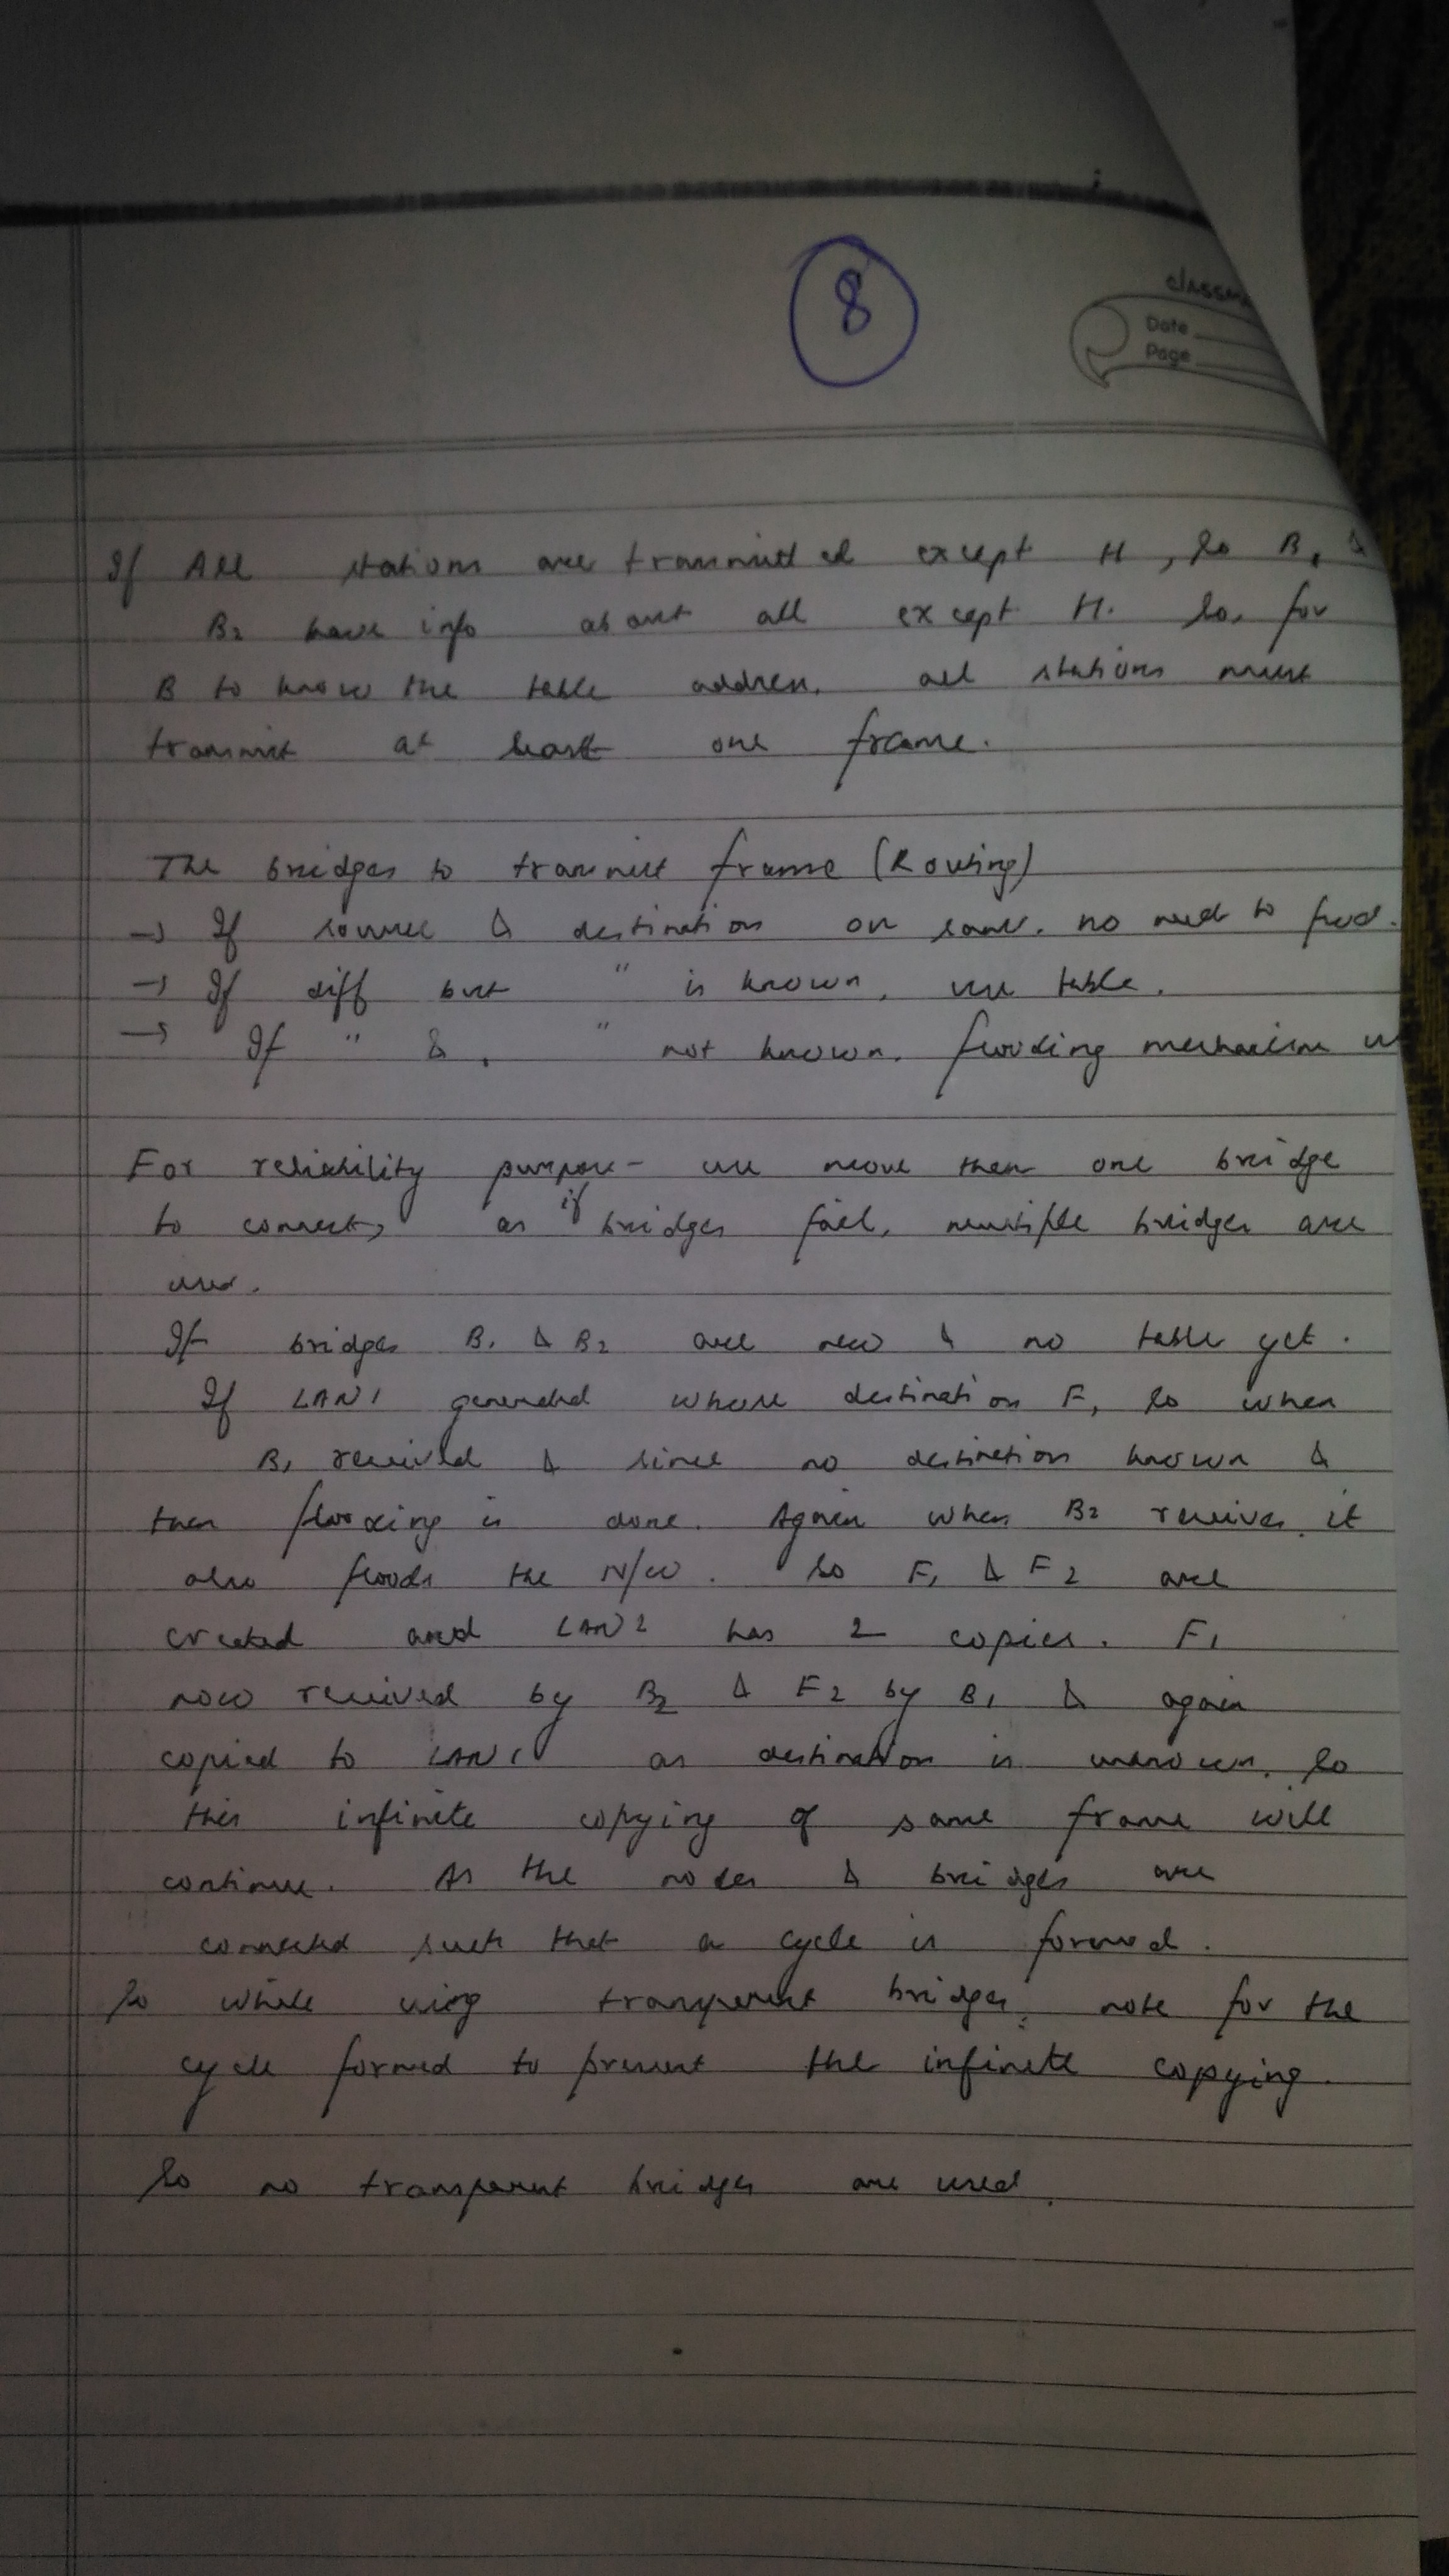 8
classma
Date
Page
If All stations are transmitted except H, so B1 &
B2 have info about all except H. So, for
B to know the table address, all stations must
transmit at least one frame.
The bridges to transmit frame (Routing)
→ If source & destination on same, no need to
→ If diff but " is known, use table.
→ If " & , " not known, flooding mechanism
For reliability purpose - use more than one bridge
to connect, as if bridges fail, multiple bridges are
used.
If bridges B1 & B2 are new & no table yet.
If LAN1 generated whose destination F, so when
B1 received & since no destination known &
then flooding is done. Again when B2 receives it
also floods the N/W. So F1 & F2 are
created and LAN2 has 2 copies. F1
now received by B2 & F2 by B1 & again
copied to LAN1 as destination is unknown. So
this infinite copying of same frame will
continue. As the nodes & bridges are
connected such that a cycle is formed.
So while using transparent bridges, note for the
cycle formed to prevent the infinite copying.
So no transparent bridges are used.